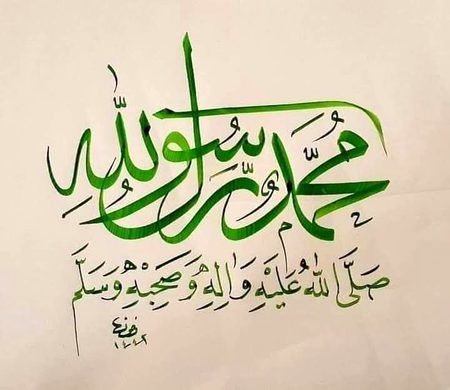 مُحَمَّدٌ رَّسُولُ اللهِ
صَلَّى اللهُ عَلَيْهِ وَاٰلِهٖ وَصَحْبِهٖ وَسَلَّمَ